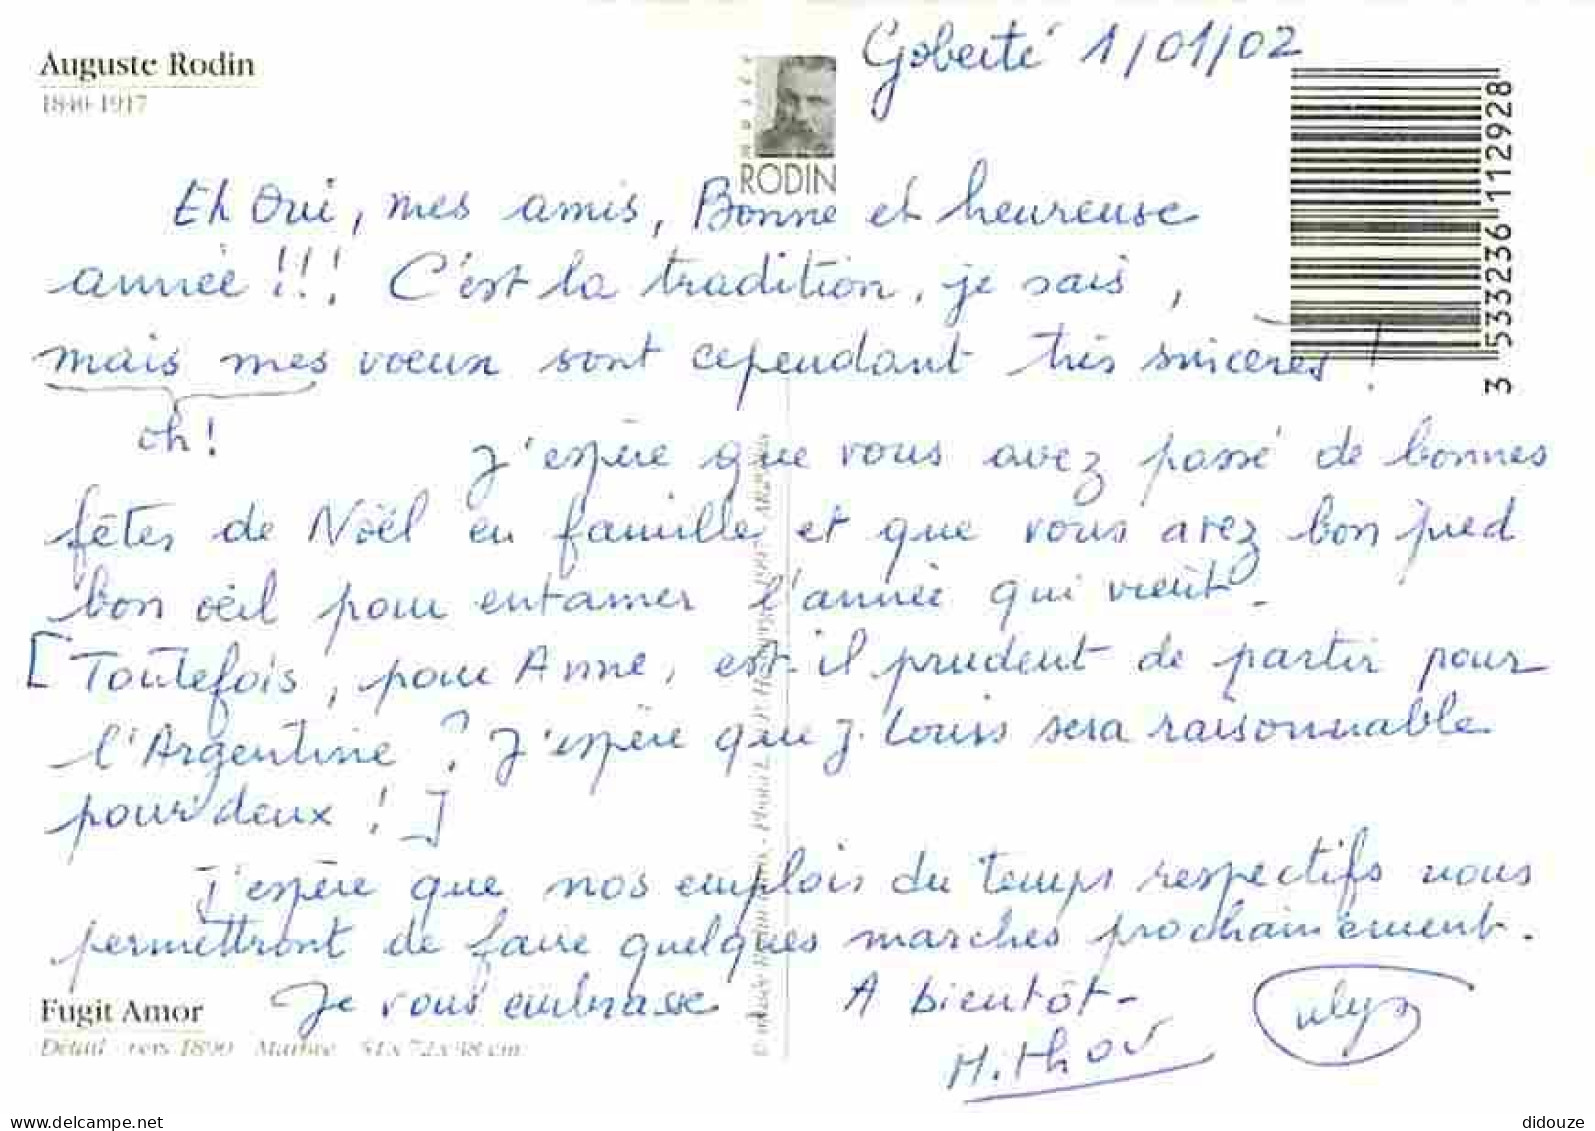 Auguste Rodin
1840-1917
MUSÉE
RODIN
3 533236 112928
Goberté 1/01/02
Eh Oui, mes amis, Bonne et heureuse
année !!! C'est la tradition, je sais,
mais mes voeux sont cependant très sincères !
oh !
J'espère que vous avez passé de bonnes
fêtes de Noël en famille et que vous avez bon pied
bon oeil pour entamer l'année qui vient.
[Toutefois, pour Anne, est-il prudent de partir pour
l'Argentine ? J'espère que J. Louis sera raisonnable
pour deux ! ]
J'espère que nos emplois du temps respectifs nous
permettront de faire quelques marches prochainement.
Je vous embrasse A bientôt-
M. Thov
Fugit Amor
Détail vers 1890 Marbre 51x72x38 cm
www.delcampe.net
didouze